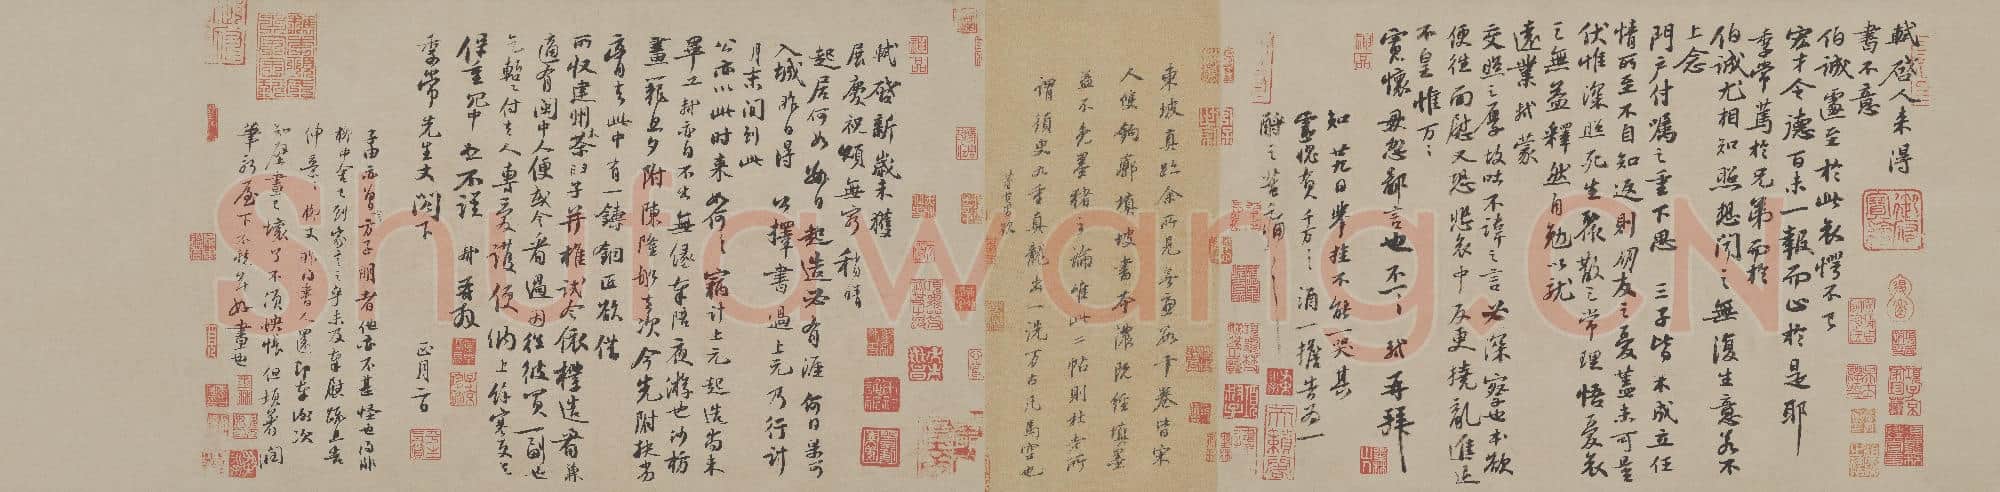 軾啓人來得
書不意
伯誠遽至於此哀愕不已
宏才令德百未一報而止於是耶
季常篤於兄弟而於
伯誠尤相知照想聞之無復生意若不
上念
門户付囑之重下思三子皆未成立任
情所至不自知返則朋友之憂蓋未可量
伏惟深照死生聚散之常理悟憂哀
之無益釋然自勉以就
遠業軾蒙
交照之厚故吐不諱之言必深察也本欲
便往面慰又恐悲哀中反更撓亂進退
不皇惟万万
寬懷毋忽鄙言也不一一軾再拜
知廿九日舉挂不能一哭其
靈愧負千万千万酒一擔告為一
酹之苦痛苦痛
東坡真跡余所見無慮數十卷皆宋
人雙鉤廓填坡書本濃既經填墨
益不免墨豬之論唯此二帖則杜老所
謂須臾九重真龍出一洗万古凡馬空也
董其昌題
軾啓新歲未獲
展慶祝頌無窮稍晴
起居何如數日起造必有涯何日果可
入城昨日得公擇書過上元乃行計
月末間到此
公亦以此時來如何何如竊計上元起造尚未
畢工軾亦自不出無緣奉陪夜游也沙枋
畫籠旦夕附陳隆船去次今先附扶劣
膏去此中有一鑄銅匠欲借
所收建州木茶臼子并椎試令依樣造看兼
適有閩中人便或令看過因往彼買一副也
乞暫付去人專愛護便納上餘寒更乞
保重冗中恕不謹軾再拜
季常先生丈閣下 正月二日
子由亦曾言方子明者他亦不甚怪也得非
柳中舍已到家言之乎未及奉慰疏且告
伸意伸意柳丈昨得書人還即奉謝次
知壁畫已壞了不須怏悵但頓著潤
筆新屋下不愁無好畫也
Shufawang.CN